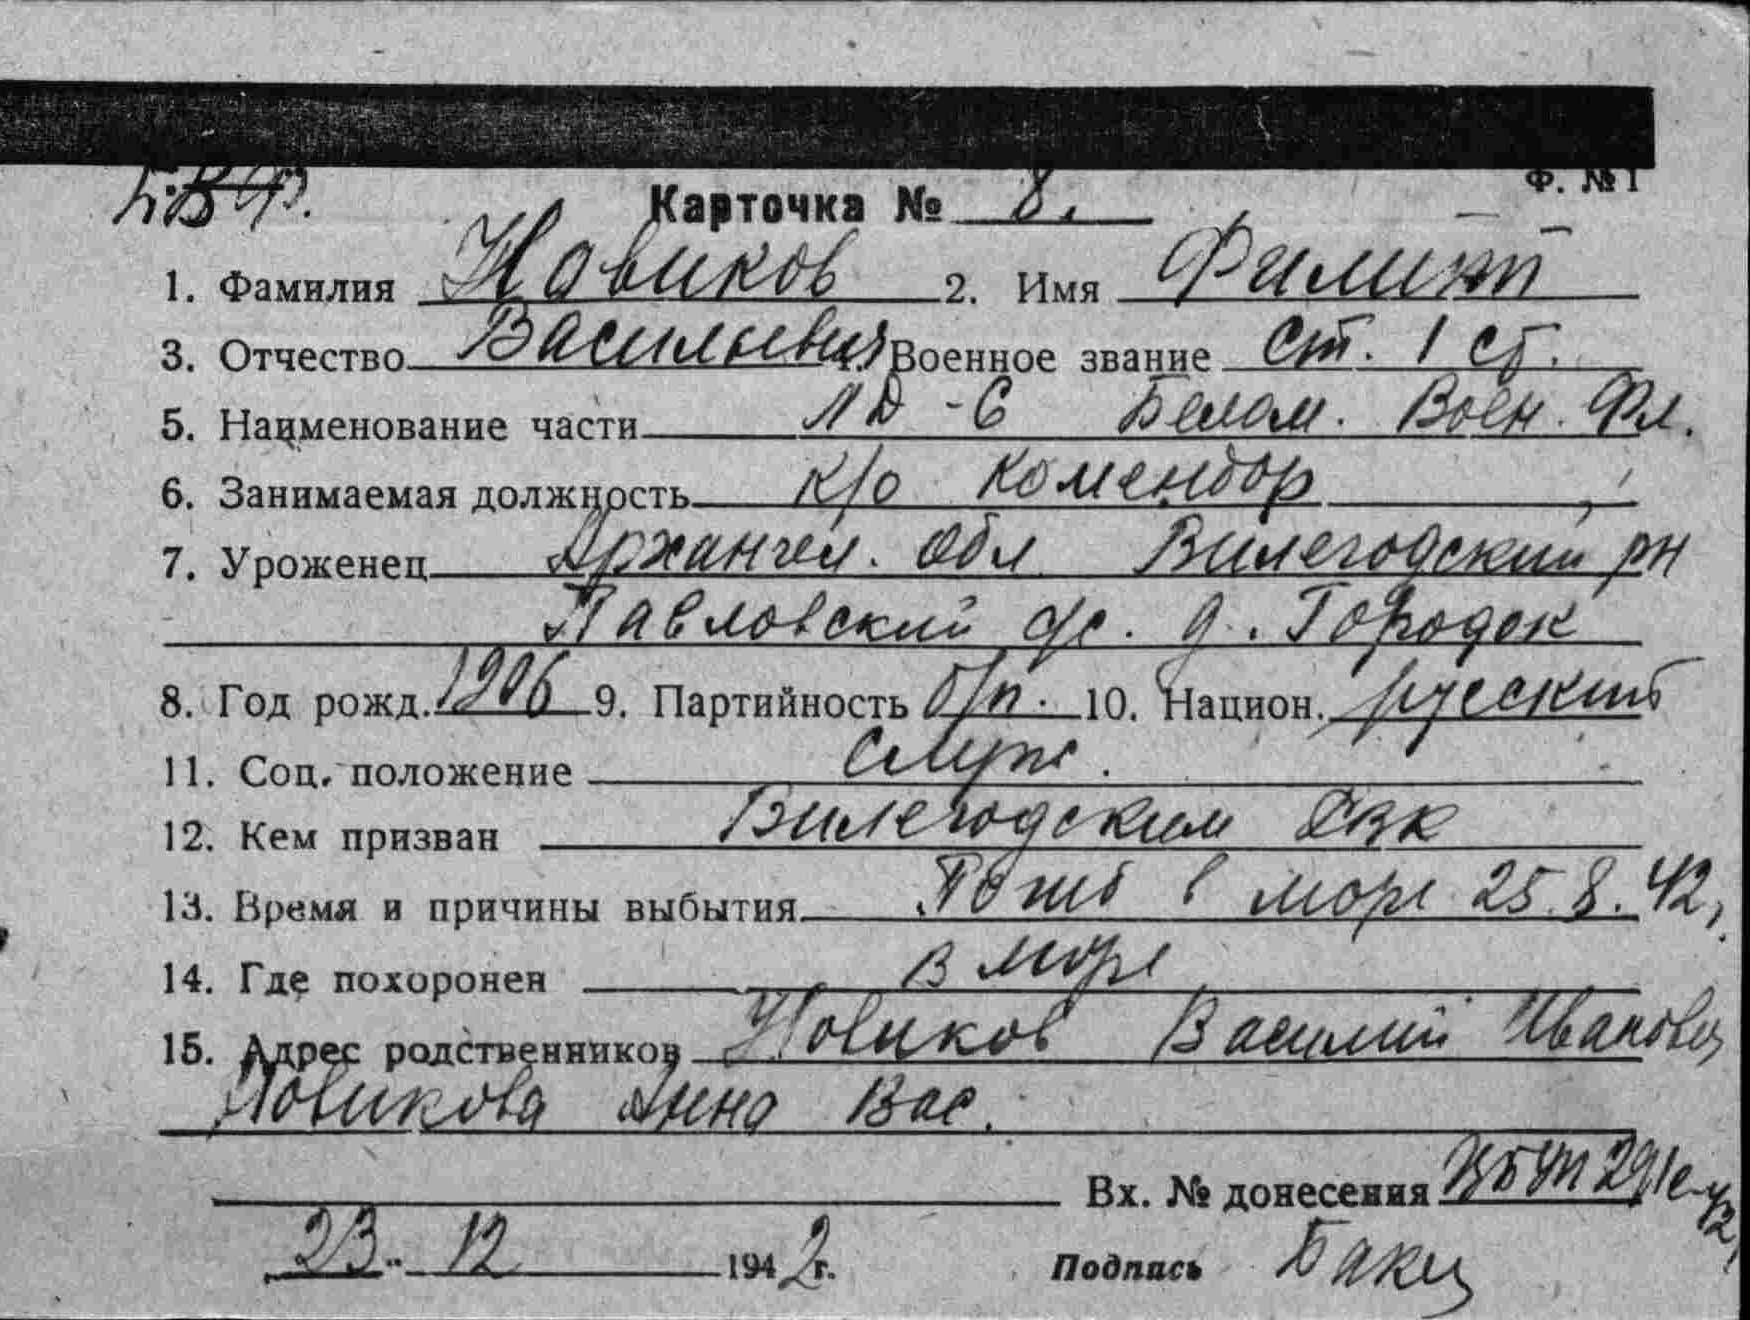 Б.В.Ф.
Ф. № 1
Карточка № 8.
1. Фамилия Новиков 2. Имя Филипп
3. Отчество Васильевич 4. Военное звание Ст. 1 ст.
5. Наименование части ЛД-6 Белом. Воен. Фл.
6. Занимаемая должность к/о комендор
7. Уроженец Архангел. обл Вилегодский рн
Павловский с/с. д. Городок
8. Год рожд. 1906 9. Партийность б/п. 10. Национ. русский
11. Соц. положение Служ.
12. Кем призван Вилегодским РВК
13. Время и причины выбытия Погиб в море 25.8.42,
14. Где похоронен в море
15. Адрес родственников Новиков Василий Иванович
Новикова Анна Вас.
Вх. № донесения
23. 12 1942г. Подпись